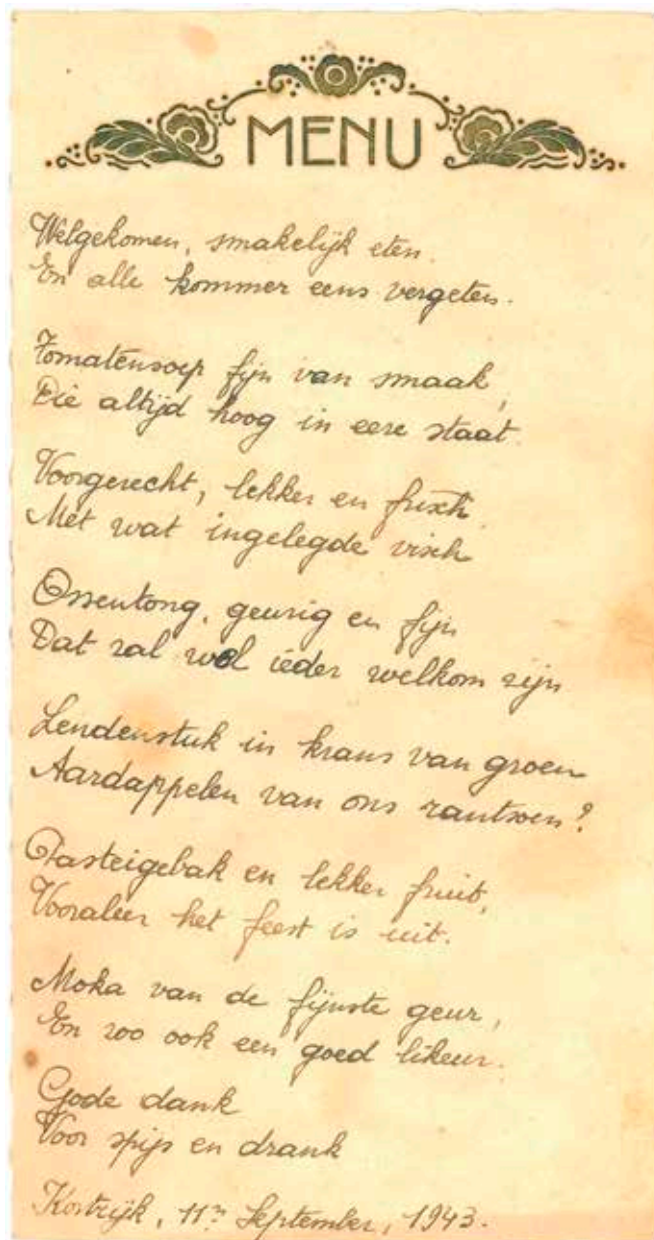 MENU
Welgekomen, smakelijk eten.
En alle kommer eens vergeten.
Tomatensoep fijn van smaak,
Die altijd hoog in eere staat.
Voorgerecht, lekker en frisch
Met wat ingelegde visch
Ossentong, geurig en fijn
Dat zal wel ieder welkom zijn
Lendenstuk in krans van groen
Aardappelen van ons rantsoen?
Pasteigebak en lekker fruit,
Vooraleer het feest is uit.
Moka van de fijnste geur,
En zoo ook een goed likeur.
Gode dank
Voor spijs en drank
Kortrijk, 11n September, 1943.